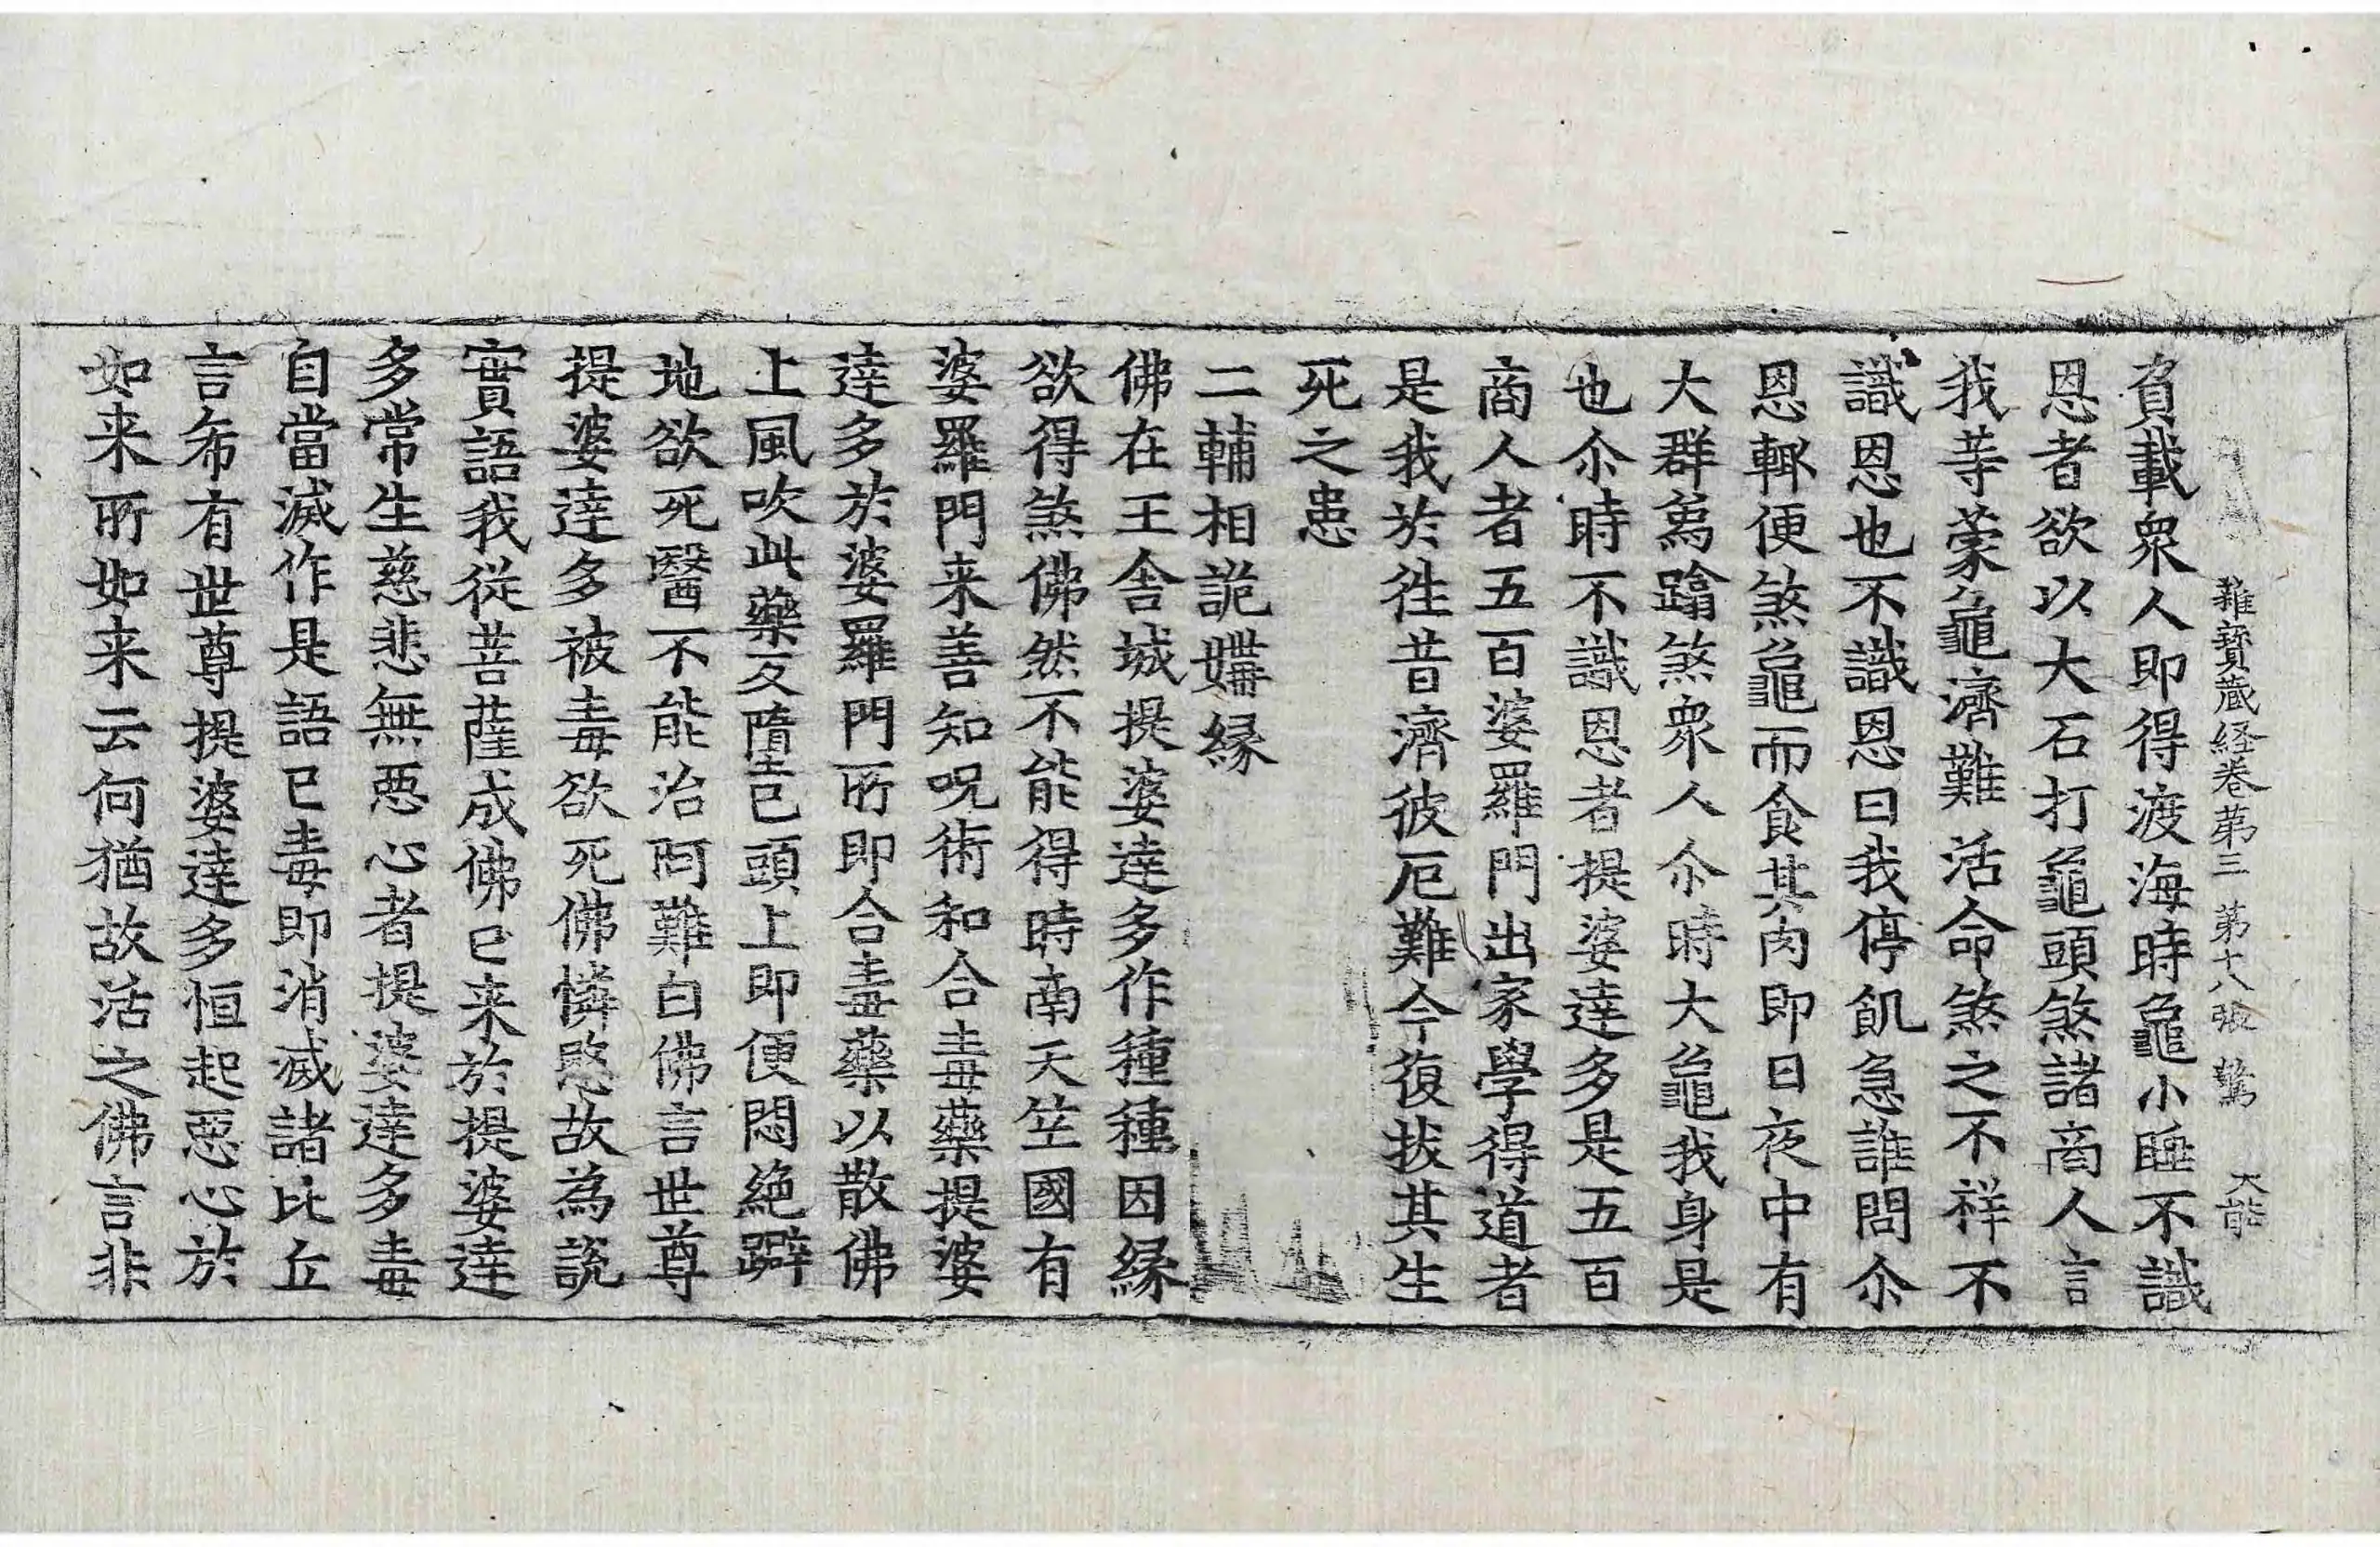 雜寶藏経卷第三 第十八張 驚 大能
負載衆人即得渡海時龜小睡不識
恩者欲以大石打龜頭煞諸商人言
我䓁蒙龜濟難活命煞之不祥不
識恩也不識恩曰我停飢急誰問尒
恩輙便煞龜而食其肉即日夜中有
大群爲蹹煞衆人尒時大龜我身是
也尒時不識恩者提婆達多是五百
商人者五百婆羅門出家學得道者
是我於徃昔濟彼厄難今復拔其生
死之患
二輔相詭媾縁
佛在王舍城提婆達多作種種因縁
欲得煞佛然不能得時南天竺國有
婆羅門来善知呪術和合毒藥提婆
達多於婆羅門所即合毒藥以散佛
上風吹此藥反墮己頭上即便悶絶躃
地欲死醫不能治阿難白佛言世尊
提婆達多被毒欲死佛憐愍故為説
實語我從菩薩成佛已来於提婆達
多常生慈悲無惡心者提婆達多毒
自當滅作是語已毒即消滅諸比丘
言希有世尊提婆達多恒起惡心於
如来所如来云何猶故活之佛言非